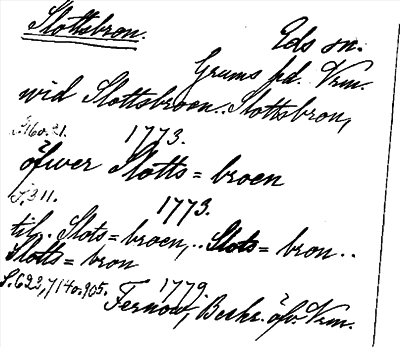 Slottsbron.
Eds sn.
Grums hd. Vrm.
wid Slottsbroen.. Slottsbron,
S. 160. 21. 1773.
öfwer Slotts=broen
S. 311. 1773.
til.. Slots=broen,.. Slots=bron..
Slotts=bron
S. 622, 714 o. 905. 1779.
Fernow, Beskr. öfv. Vrm.